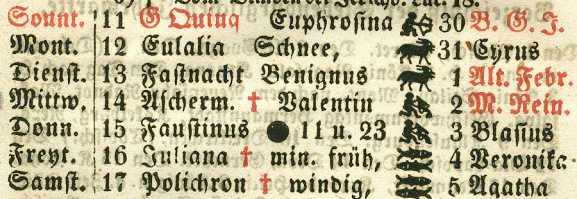 Sonnt. 11 G Quinq Euphrosina 30 B. G. J.
Mont. 12 Eulalia Schnee, 31 Cyrus
Dienst. 13 Fastnacht Benignus 1 Alt. Febr.
Mittw. 14 Ascherm. † Valentin 2 M. Rein.
Donn. 15 Faustinus ● 11 u. 23 3 Blasius
Freyt. 16 Juliana † min. früh, 4 Veronika
Samst. 17 Polichron † windig, 5 Agatha